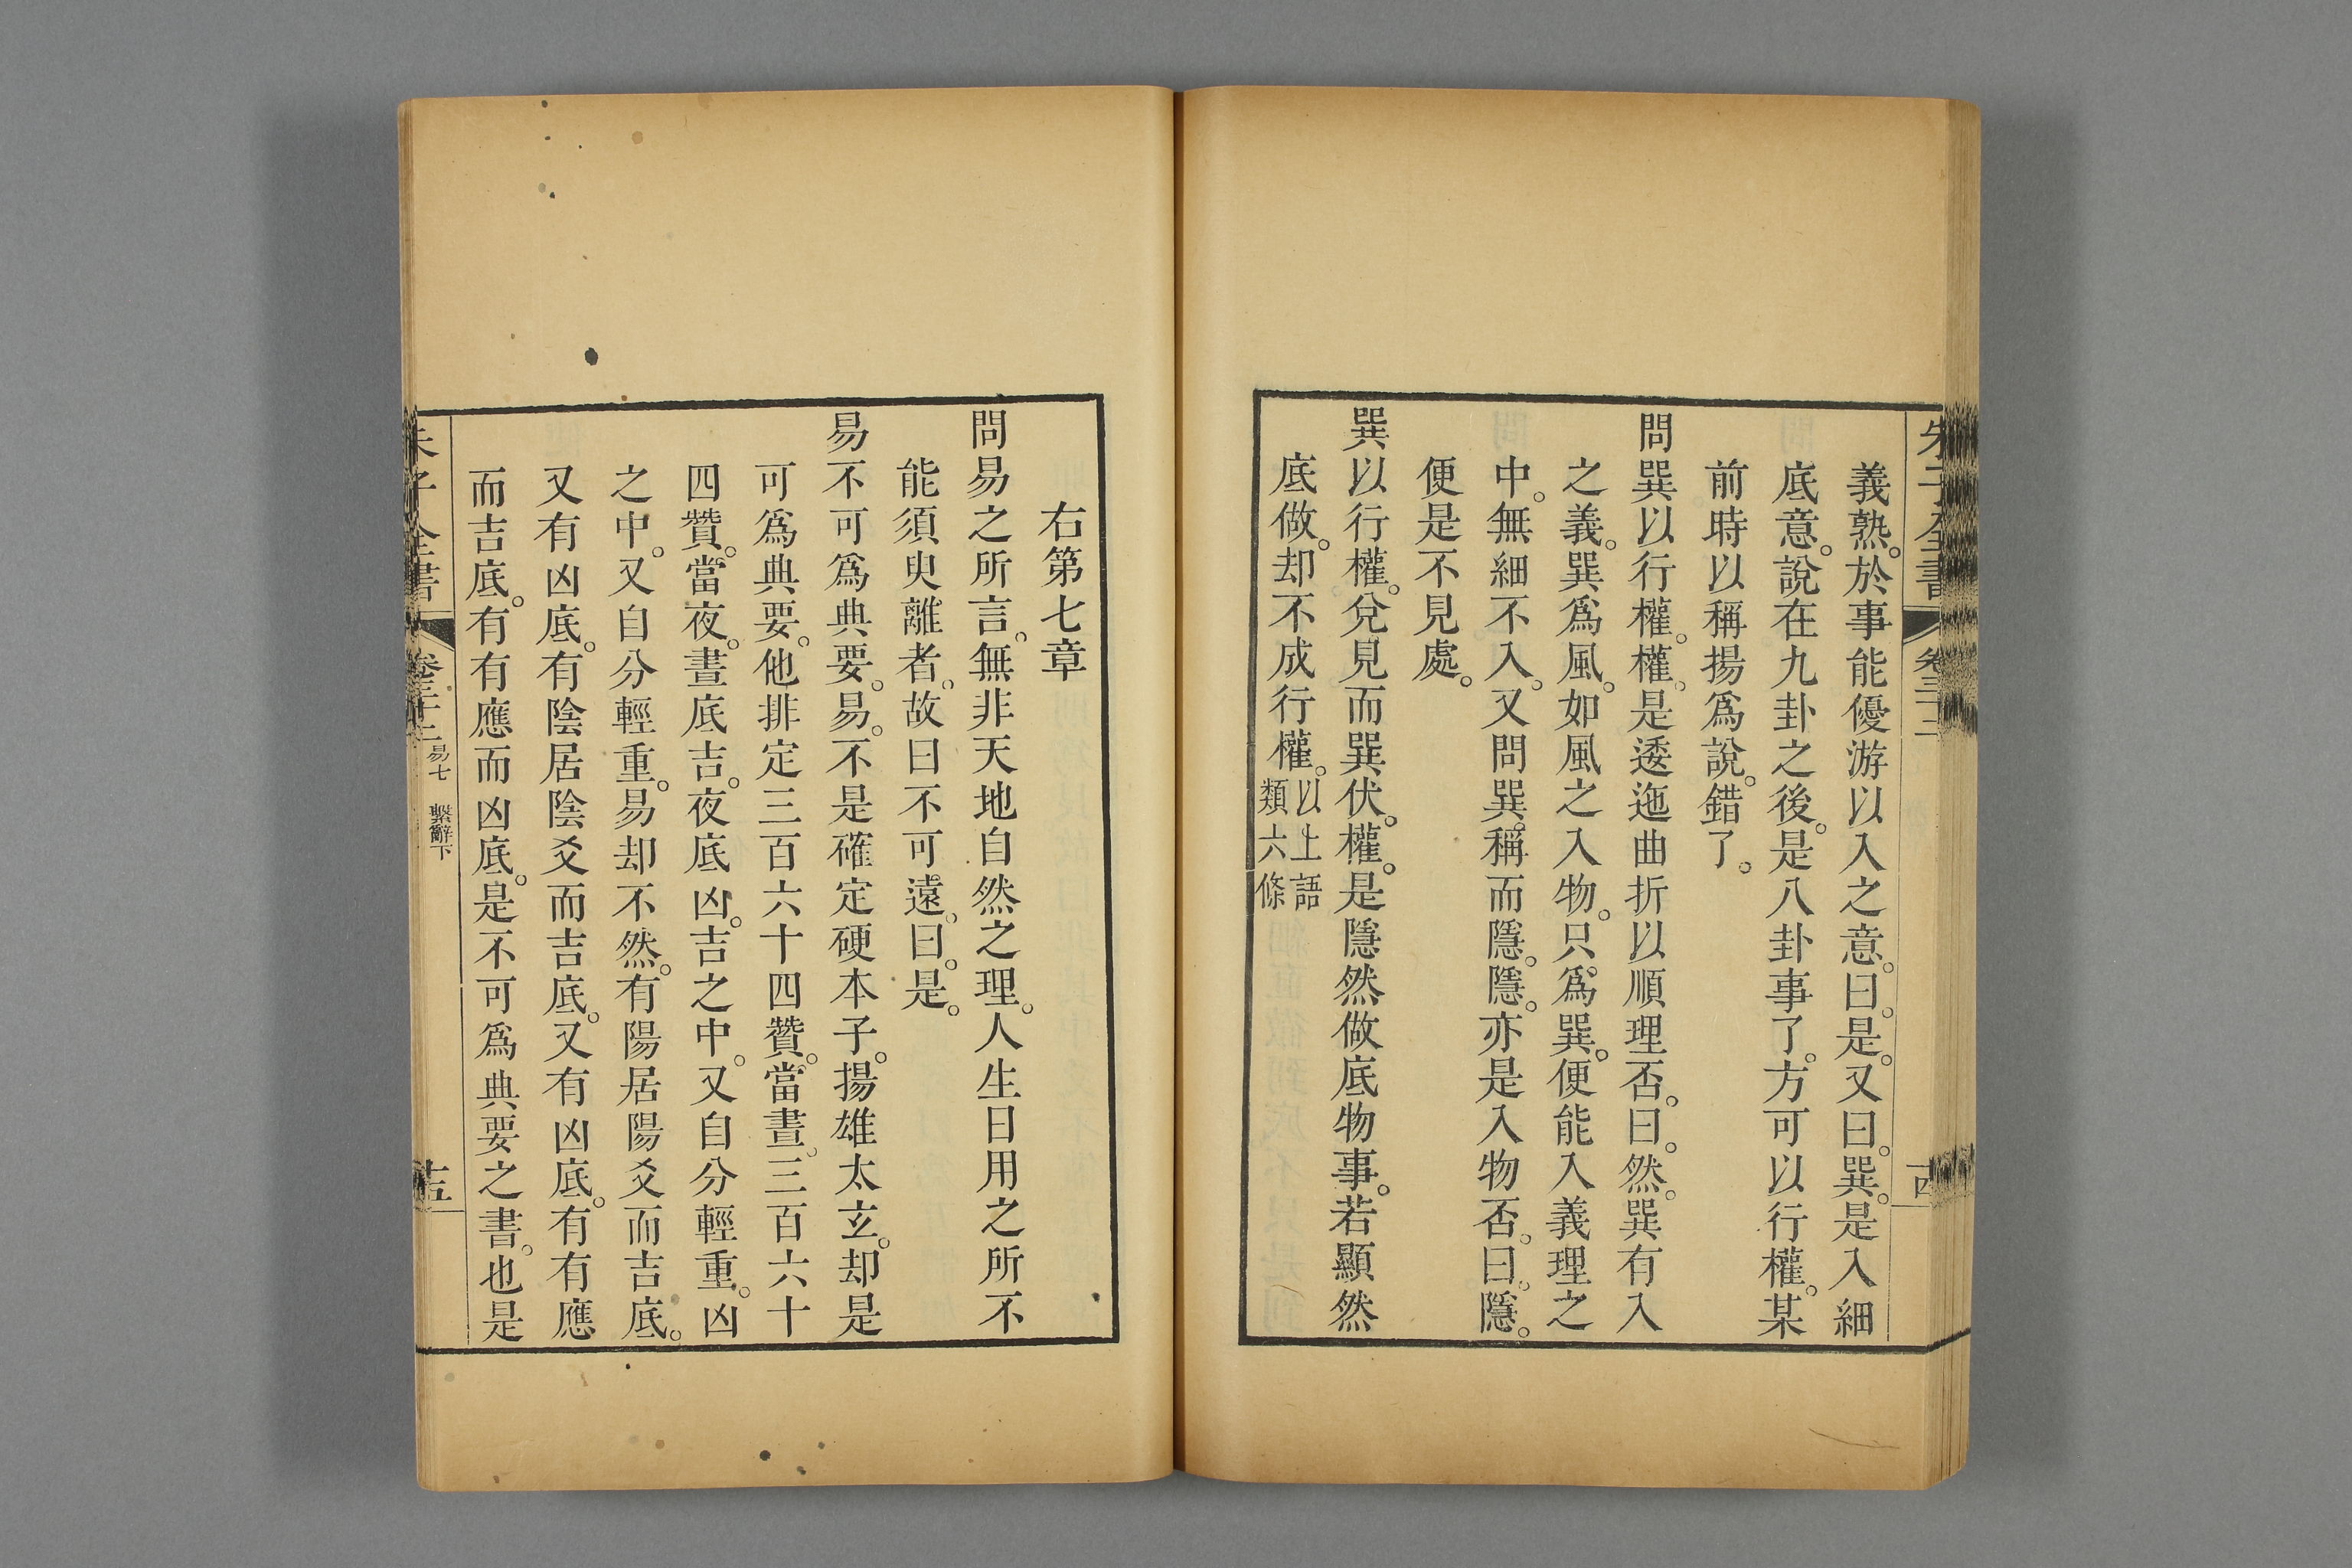 朱子全書 卷三十二 十四
義熟。於事能優游以入之意。曰。是。又曰。巽。是入細
底意。說在九卦之後。是八卦事了。方可以行權。某
前時以稱揚爲說。錯了。
問巽以行權。權。是逶迤曲折以順理否。曰。然。巽有入
之義。巽爲風。如風之入物。只爲巽。便能入義理之
中。無細不入。又問巽。稱而隱。隱。亦是入物否。曰。隱。
便是不見處。
巽以行權。兌見而巽伏。權。是隱然做底物事。若顯然
底做。却不成行權。以上語類六條
右第七章
問易之所言。無非天地自然之理。人生日用之所不
能須臾離者。故曰不可遠。曰。是。
易不可爲典要。易。不是確定硬本子。揚雄太玄。却是
可爲典要。他排定三百六十四贊。當晝。三百六十
四贊。當夜。晝底吉。夜底凶。吉之中。又自分輕重。凶
之中。又自分輕重。易却不然。有陽居陽爻而吉底。
又有凶底。有陰居陰爻而吉底。又有凶底。有有應
而吉底。有有應而凶底。是不可爲典要之書。也是
朱子全書 卷三十二 易七 繫辭下 十五